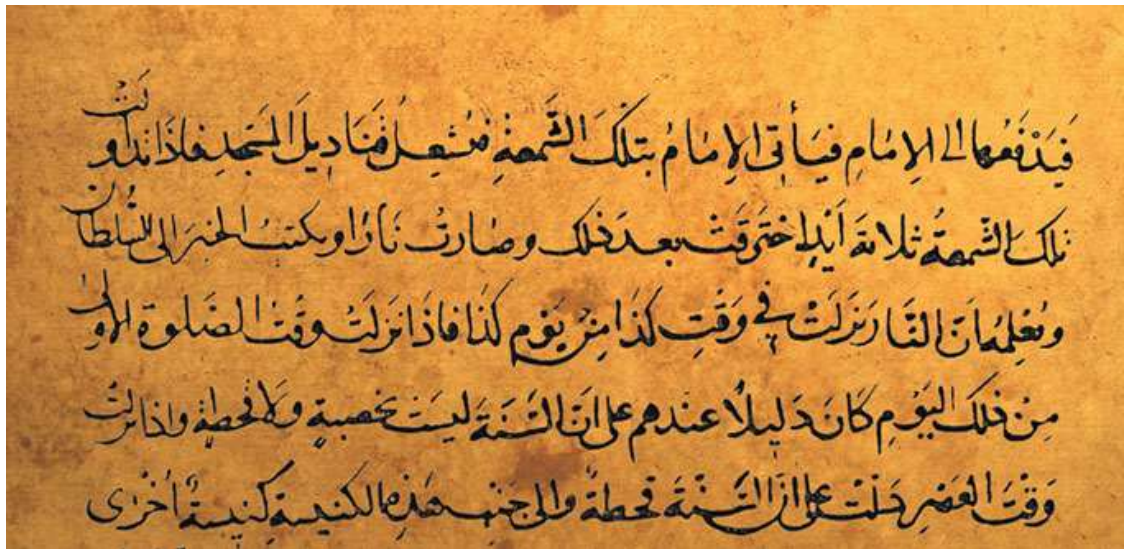 فَيَدْفَعُهَا الى الإِمَامِ فيَأتي الإِمَامُ بتلكَ الشَّمعَةِ فيُشعِلُ قنَادِيلَ المسَجدِ فاذَا تداوَلَتْ
تلكَ الشَّمعةُ ثلاثةَ أَيْدٍ اِحْتَرقَتْ بعدَ ذلك وصَارتْ نَارًا ويكتبُ الخبرَ الى السُّلطان
ويُعْلِمهُ انّ النَّار نَزَلَتْ في وَقْتِ كَذا مِنْ يَوْمِ كَذَا فاذَا نزلَتْ وقتَ الصَّلوة الاولى
مِنْ ذلك اليَوْمِ كانَ دَليلًا عندهم على انّ السَّنَةَ ليسَتْ بخصبةٍ ولا قحطةٍ واذا نزلَتْ
وَقْتَ العَصْرِ دَلّتْ على انّ السَّنَةَ قحطةٌ والى جنبِ هَذِهِ الكنيسةِ كنيسةٌ أُخْرَى